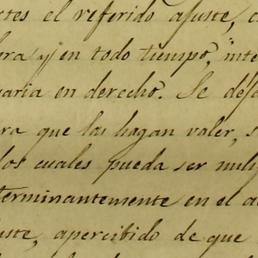 ctes el referido ajuste, c
ra y en todo tiempo, inte
aria en derecho. Se dej
ra que las hagan valer, s
los cuales pueda ser nuly
terminantemente en el a
uste, apercibido de que